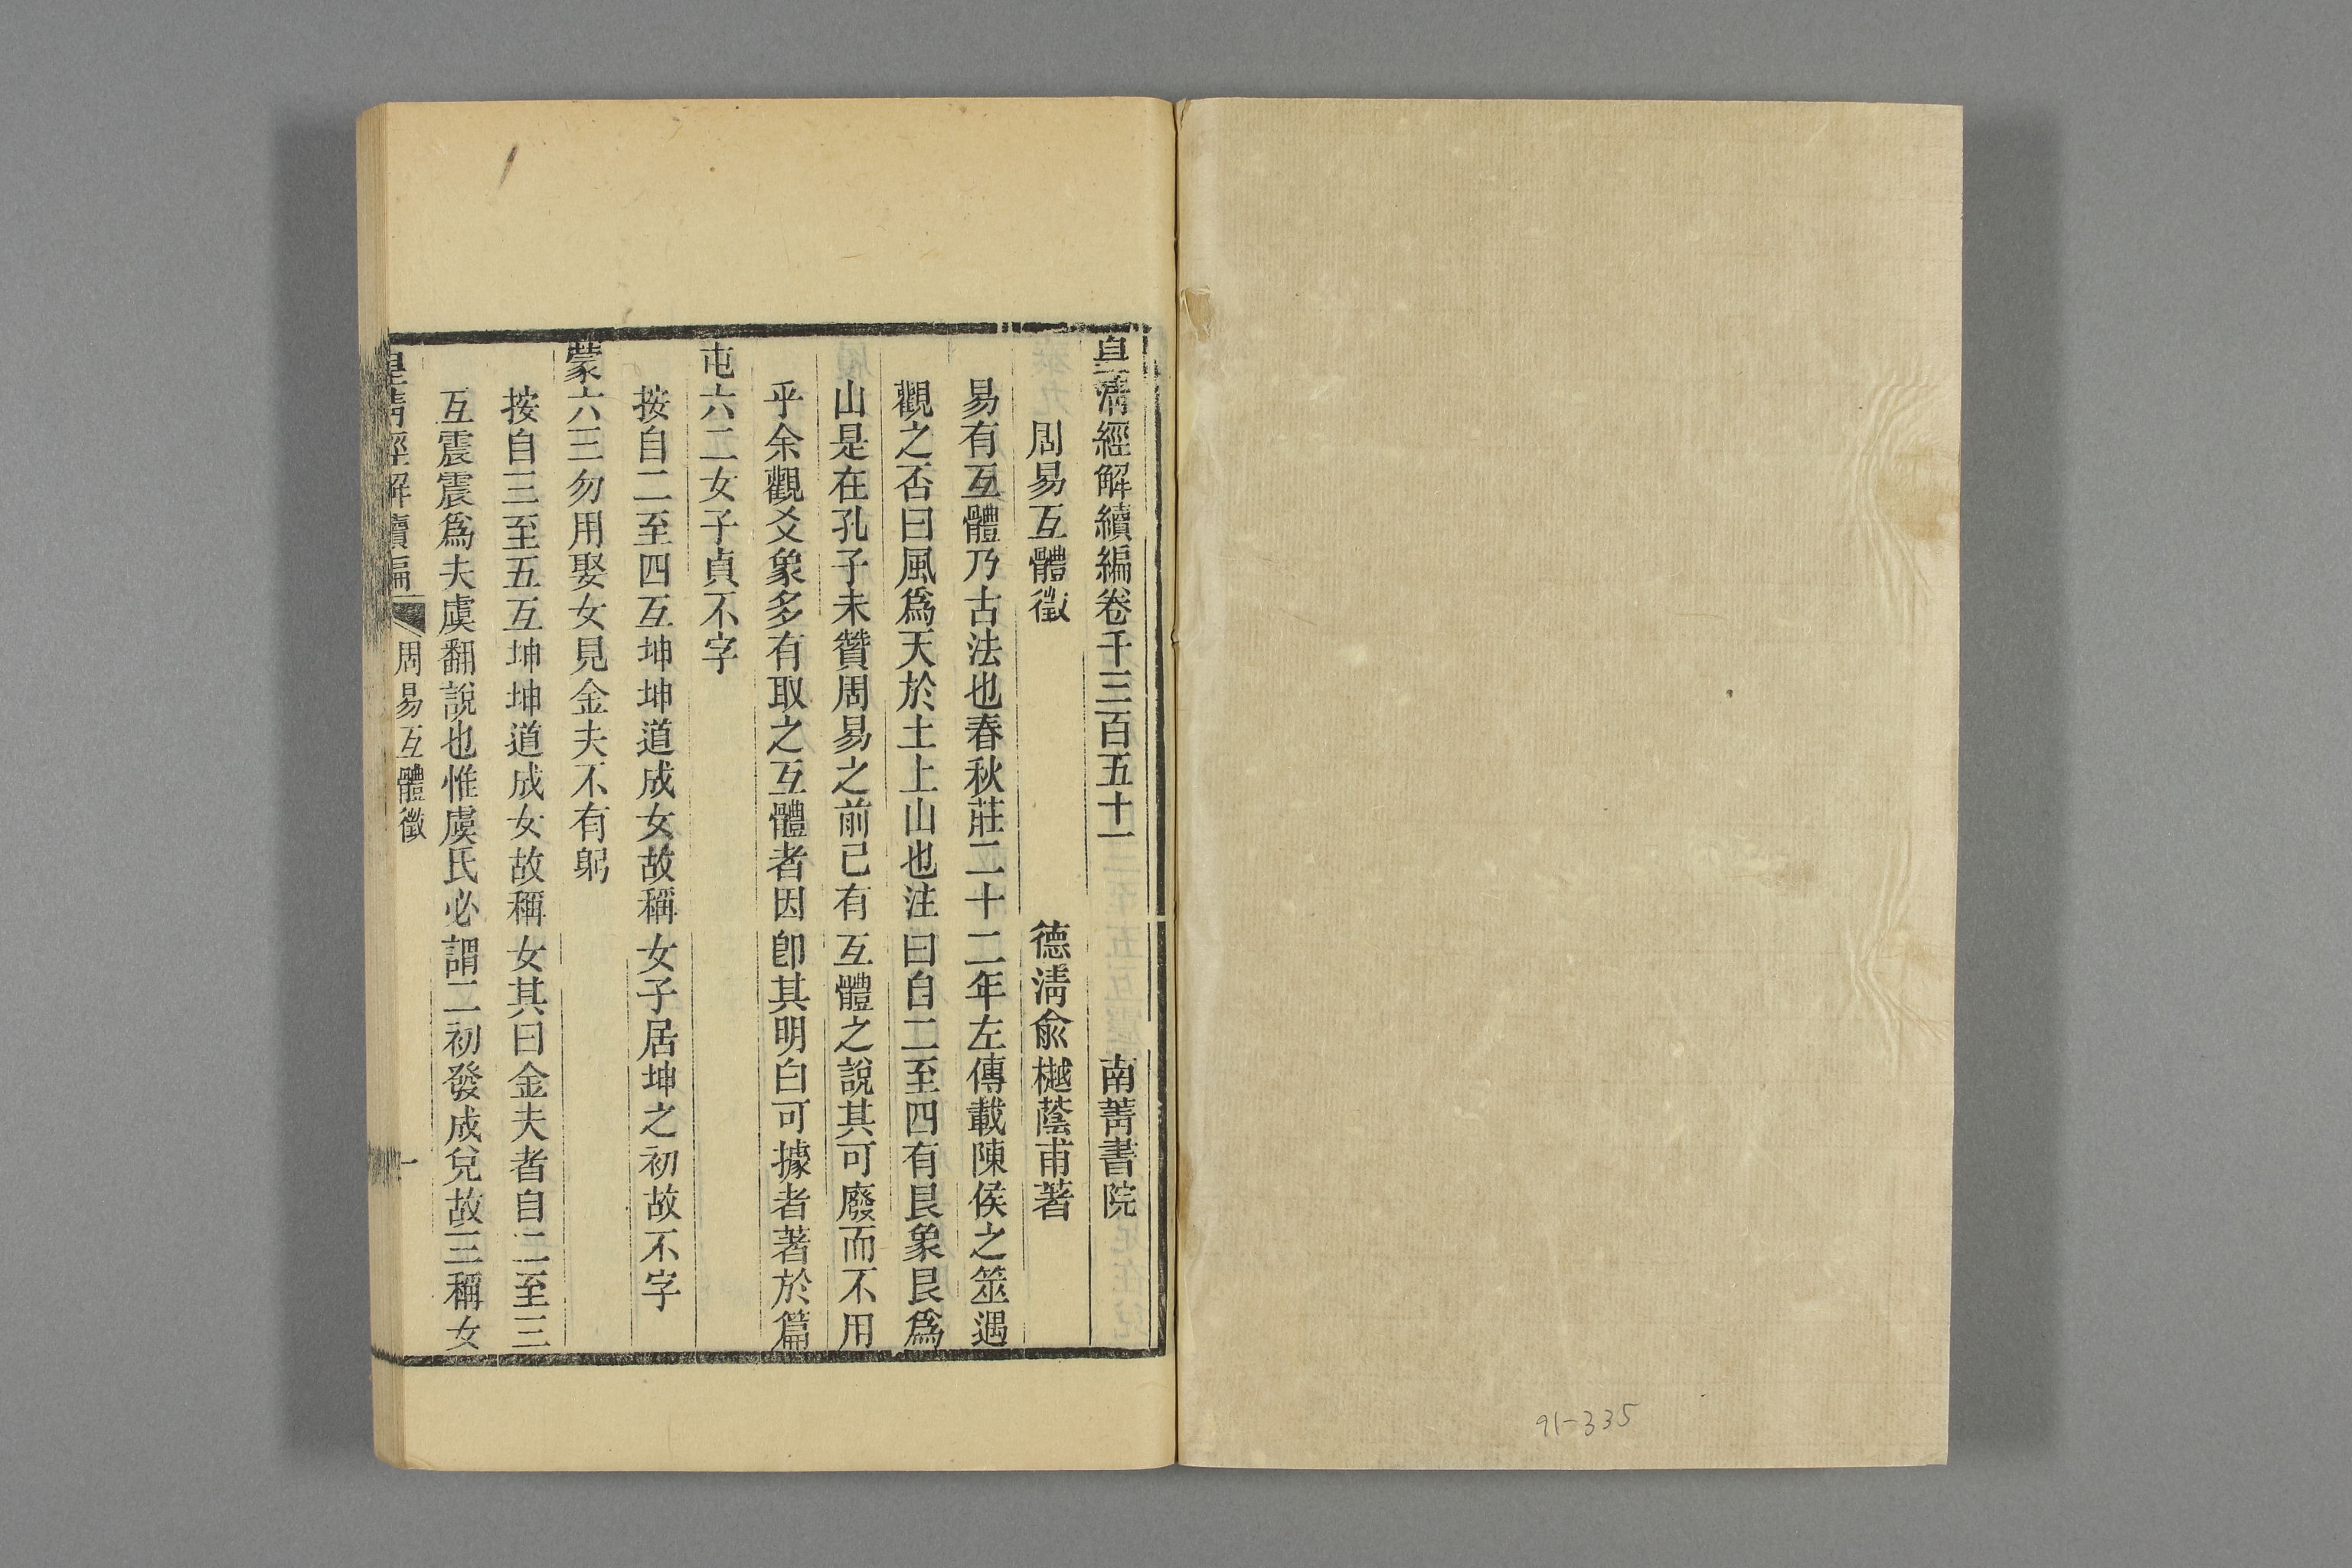 皇清經解續編卷千三百五十一 南菁書院
周易互體徵 德淸俞樾蔭甫著
易有互體乃古法也春秋莊二十二年左傳載陳侯之筮遇
觀之否曰風爲天於土上山也注曰自二至四有艮象艮爲
山是在孔子未贊周易之前已有互體之說其可廢而不用
乎余觀爻象多有取之互體者因卽其明白可據者著於篇
屯六二女子貞不字
按自二至四互坤坤道成女故稱女子居坤之初故不字
蒙六三勿用娶女見金夫不有躬
按自三至五互坤坤道成女故稱女其曰金夫者自二至三
互震震爲夫虞翻說也惟虞氏必謂二初發成兌故三稱女
皇清經解續編 周易互體徵 一
91-335